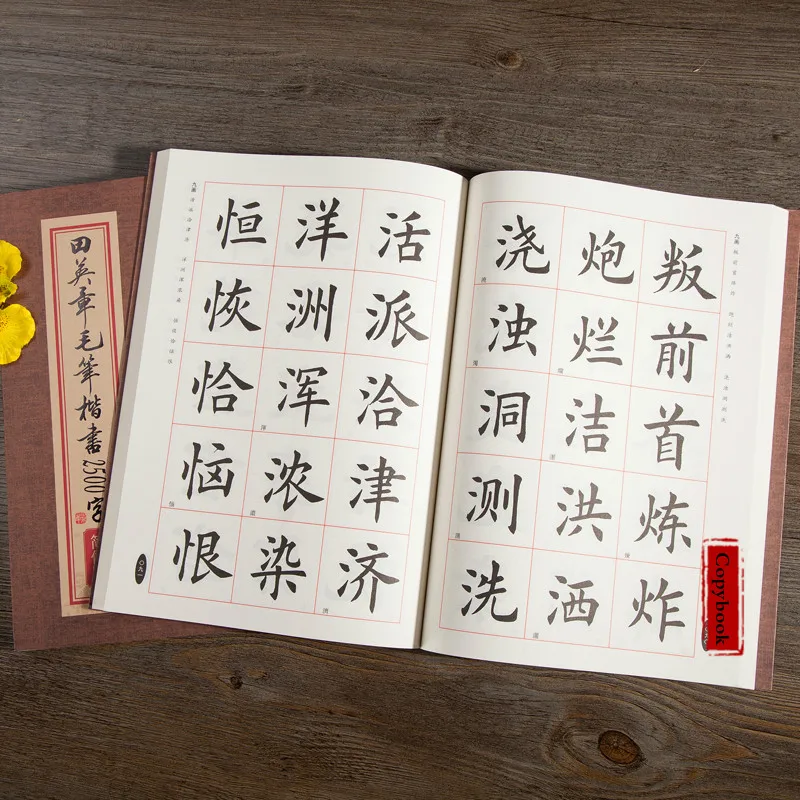 田英章毛筆楷書2500字
九画
叛前首炼炸
炮烂洁洪洒
浇浊洞测洗
活派洽津济
洋洲浑浓染
恒恢恰恼恨
九画
〇九一
Copybook